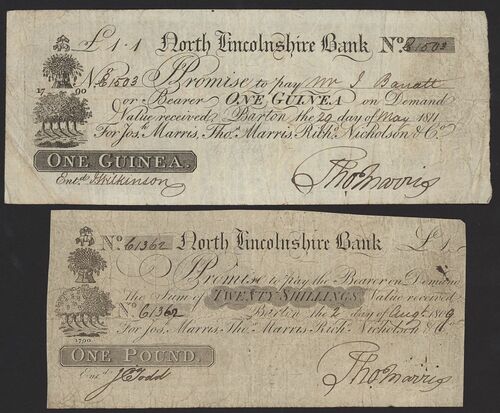 £1.1 North Lincolnshire Bank No. B1503
No. B1503 I Promise to pay Mr J Barratt
1790 or Bearer ONE GUINEA on Demand
Value received Barton the 29 day of May 1811
For Jos. Marris, Thos. Marris, Richd. Nicholson & Co.
ONE GUINEA.
Entd. J Wilkinson Thos Marris
No. C1362 North Lincolnshire Bank £1.
I Promise to pay the Bearer on Demand
The Sum of TWENTY SHILLINGS Value received
No. C1362 Barton the 2 day of Augt 1809
For Jos. Marris, Thos. Marris, Richd. Nicholson & Co.
1790
ONE POUND.
Entd. J Todd Thos Marris